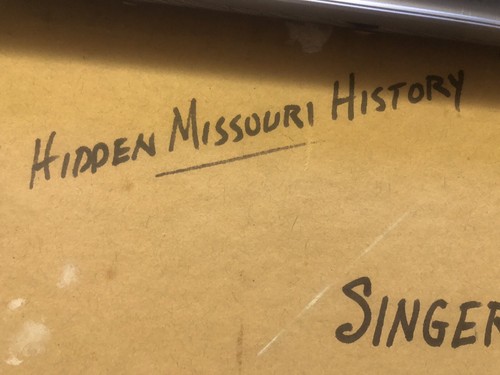 HIDDEN MISSOURI HISTORY
SINGER